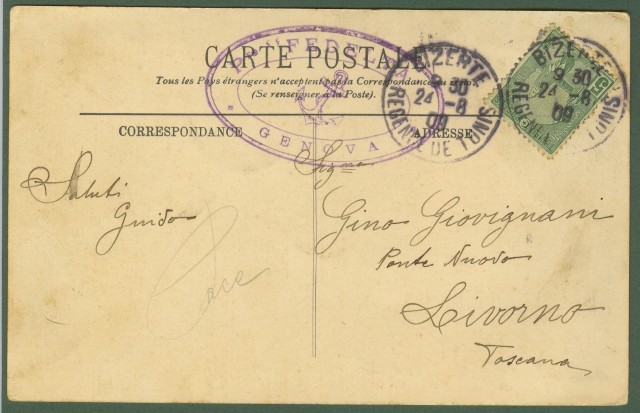 CARTE POSTALE
Tous les Pays étrangers n'acceptent pas la Correspondance au recto.
(Se renseigner à la Poste).
FEDELTÀ
GENOVA
BIZERTE
9 30
24 -8
09
REGENCE DE TUNIS
BIZERTE
9 30
24 -8
09
REGENCE TUNIS
CORRESPONDANCE
ADRESSE
Saluti
Guido
Sigr
Gino Giovignani
Ponte Nuovo
Livorno
Toscana